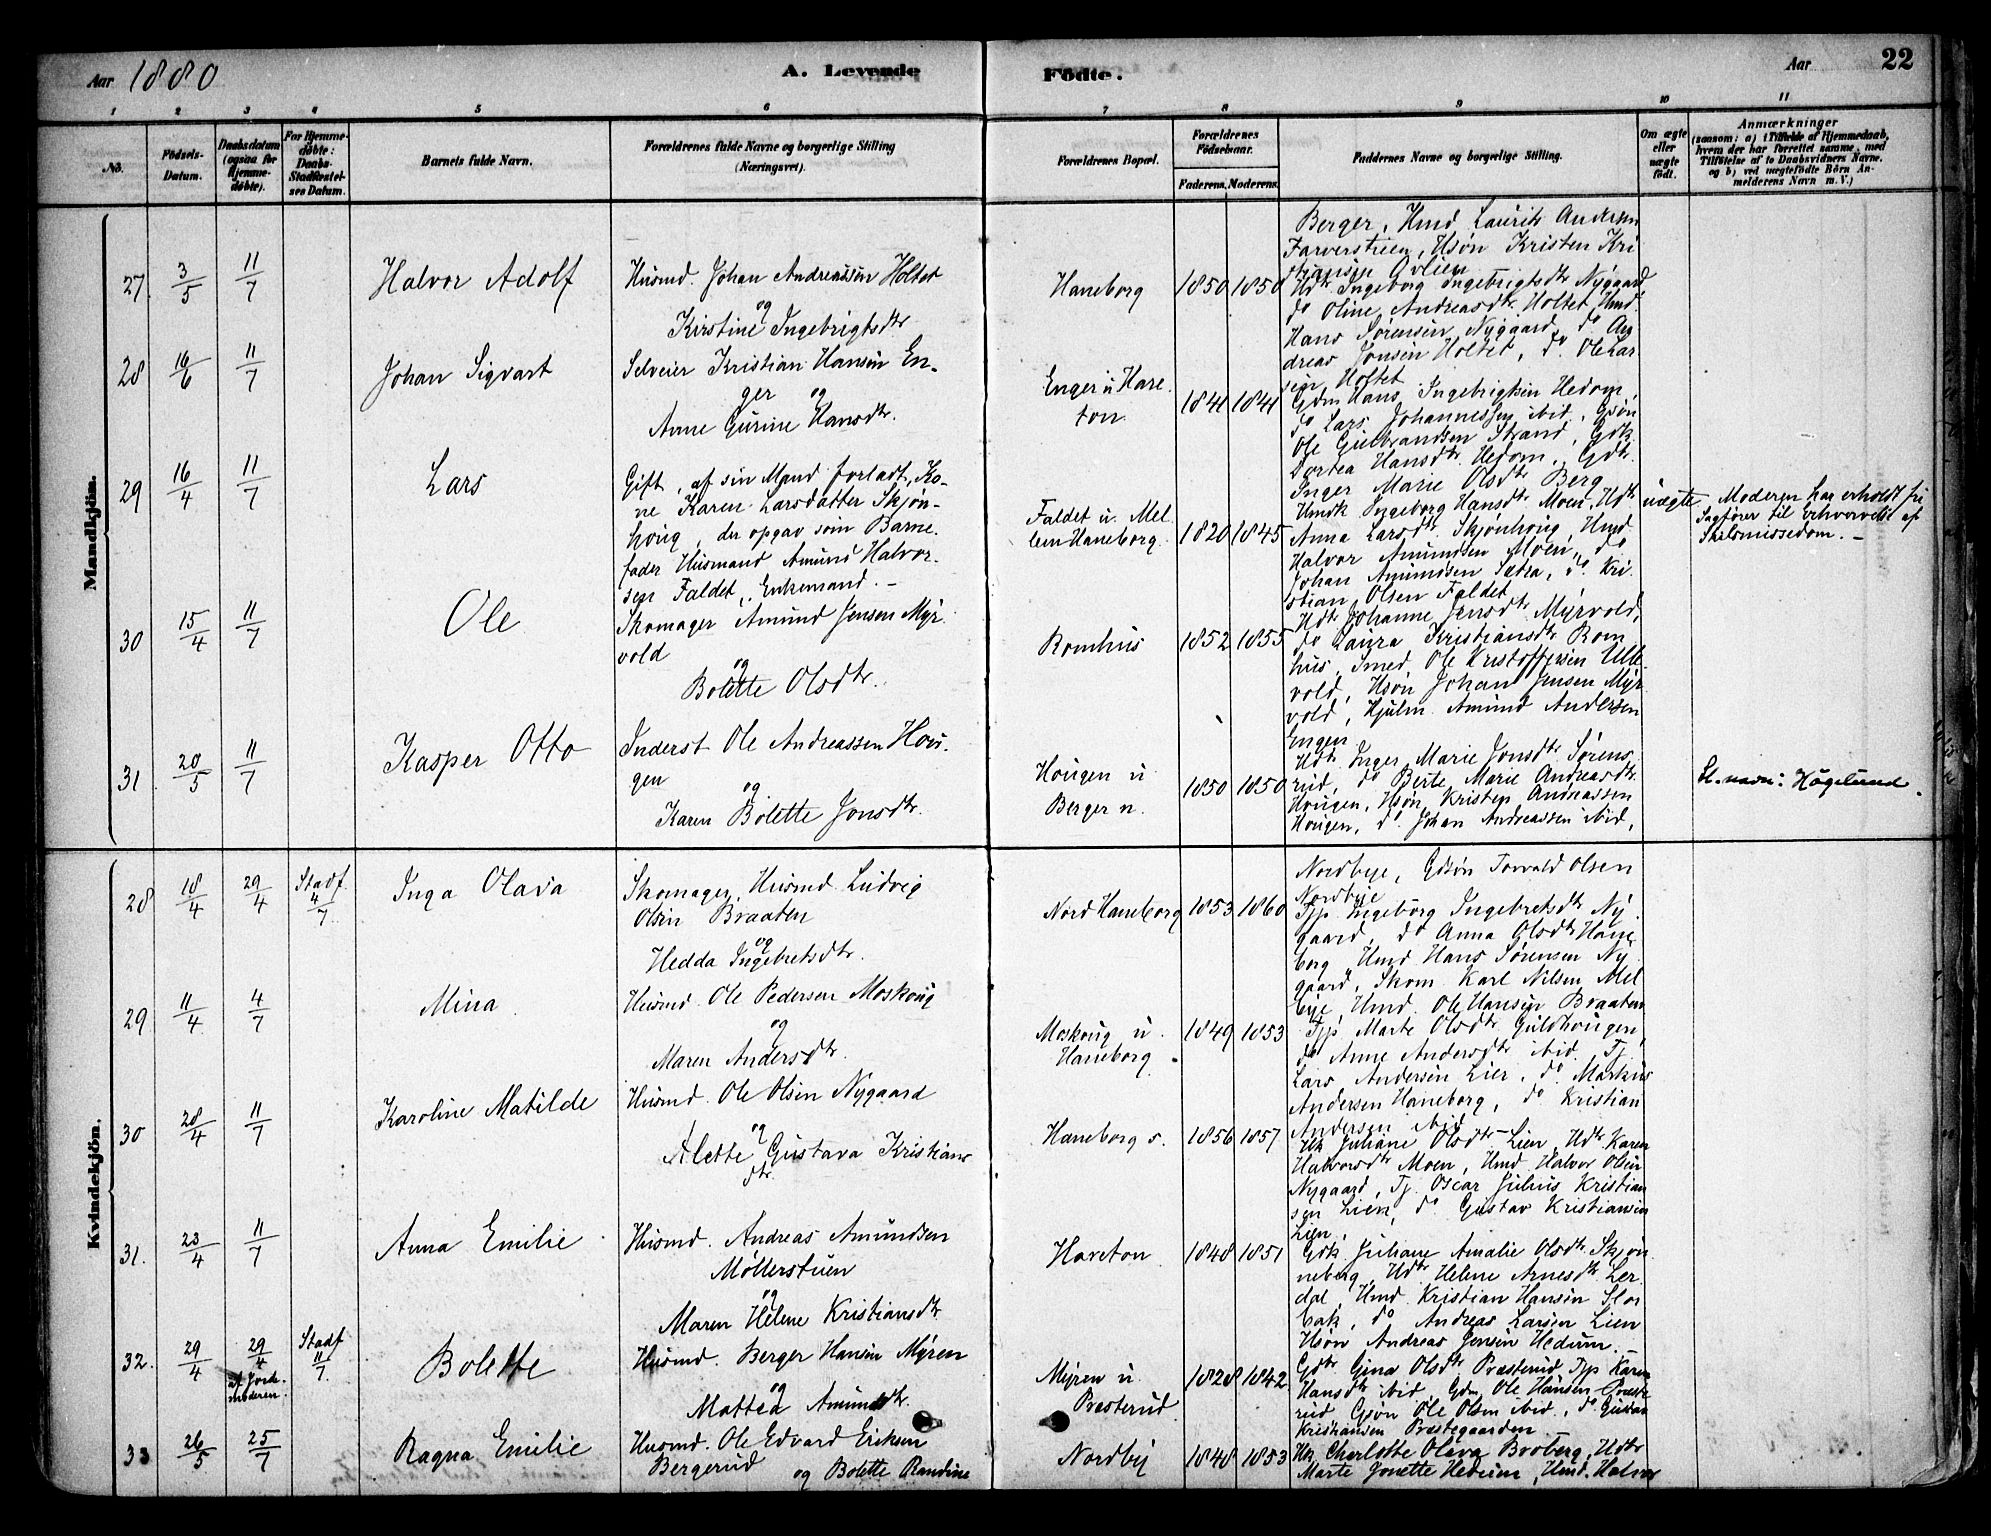 Aar 1880
A. Levende
Fødte.
Aar
22
1
2
3
4
5
6
7
8
9
10
11
No.
Fødsels-
Datum.
Daabsdatum
(ogsaa for
Hjemme-
døbte).
For Hjemme-
døbte:
Daabs-
Stadfæstel-
ses Datum.
Barnets fulde Navn.
Forældrenes fulde Navne og borgerlige Stilling
(Næringsvei).
Forældrenes Bopæl.
Forældrenes
Fødselsaar.
Faderens. Moderens.
Faddernes Navne og borgerlige Stilling.
Om ægte
eller
uægte
født.
Anmærkninger
(saasom: a) i Tilfælde af Hjemmedaab,
hvem der har forrettet samme, med
Tilføielse af to Daabsvidners Navne.
og b) ved uægtefødte Børn An-
melderens Navn m.V.)
Mandkjøn.
27. 3/5 11/7
Halvor Adolf
Husmd. Johan Andreassen Holtet
og
Kirstine Ingebrigtsdtr
Haneborg
1850 1850
Berger, Hmd Laurits Andersen
Farverstuen, Hsøn Kristen Kri
stiansen Ovlien
Hdtr Ingeborg Ingebrigtsdtr Nygaard
do Oline Andreasdtr Holtet Hmd.
Hans Sørensen Nygaard, do An
dreas Jonsen Holtet, do Ole Lar
sen Holtet
28 16/6 11/7
Johan Sigvart
Selveier Kristian Hansen En-
ger og
Anne Gurine Hansdtr.
Enger u Hare
ton
1841 1841
Gdm Hans Ingebrigtsen Hedom,
do Lars Johannessen ibid, Gsøn
Ole Gulbrandsen Strand, Gdk
Dortea Hansdtr Hedom, Gdtr.
Inger Marie Olsdtr Berg
29 16/4 11/7
Lars
Gift, af sin Mand forladt, Ko-
ne Karen Larsdatter Skjøn-
houg, der opgav som Barne-
fader Husmand Amund Halvor-
sen Faldet, Enkemand. -
Faldet u. Mel
lem Haneborg.
1820 1845
Hmdk Ingeborg Hansdtr Moen, Hdtr
Anna Larsdtr Skjønhoug, Hmd
Halvor Amundsen Moen, do
Johan Amundsen Sætra, do Kri
stian Olsen Faldet
uægte
Moderen har erholdt fri
Sagfører til Erhvervelse af
Skilsmissedom. -
30 15/4 11/7
Ole
Skomager Amund Jensen Myr
vold
og
Bolette Olsdtr.
Romhus
1852 1855
Hdtr Johanne Jensdtr Myrvold,
do Laura Kristiansdtr Rom
hus, Smed Ole Kristoffersen Ulle
vold, Hsøn Johan Jensen Myr
vold, Hjulm. Amund Andersen
Engen
31. 20/5 11/7
Kasper Otto
Inderst Ole Andreassen Hou-
gen
og
Karen Bolette Jonsdtr.
Hougen u
Berger n.
1850 1850
Hdtr Inger Marie Jonsdtr Sørens
rud, do Berte Marie Andreasdtr
Hougen, Hsøn Kristen Andreassen
Hougen, do Johan Andreassen ibid,
Sl.navn: Hågelund.
Kvindekjøn.
28 18/4 29/4 Stadf. 4/7.
Inga Olava
Skomager, Husmd Ludvig
Olsen Braaten
og
Hedda Ingebretsdtr.
Nord Haneborg
1853 1860
Nordbye, Gdsøn Torvald Olsen
Nordbye
Tjp Ingeborg Ingebretsdtr Ny
gaard, do Anna Olsdtr Hane
borg, Hmd Hans Sørensen Ny
gaard, Skom. Karl Nilsen Mel
bye, Hmd. Ole Hansen Braaten
29 11/4 4/7
Mina
Husmd. Ole Pedersen Moskoug
og
Maren Andersdtr.
Moskoug u.
Haneborg
1849 1853
Tjp Marte Olsdtr Guldhougen,
do Anne Andersdtr ibid. Tj.
Lars Andersen Lier, do Markus
Andersen Haneborg, do Kristian
Andersen ibid
30 28/4 11/7
Karoline Matilde
Husmd. Ole Olsen Nygaard
og
Alette Gustava Kristians
dtr.
Haneborg s.
1856 1857
Hk Juliane Olsdtr Lien, Hdtr Karen
Halvorsdtr Moen, Hmd Halvor Olsen
Nygaard, Tj. Oscar Julius Kristian
sen Lien, do Gustav Kristiansen
Lien,
31. 23/4 11/7
Anna Emilie
Husmd. Andreas Amundsen
Møllerstuen
og
Maren Helene Kristiansdtr.
Hareton
1848 1851
Gdk Juliane Amalie Olsdtr Skjøn
neberg, Hdtr Helene Arnesdtr Ler
dal, Hmd Kristian Hansen Slor
bak, do Andreas Larsen Lien
Hsøn Andreas Jensen Hedum. -
32. 29/4 29/4 af Jord-
moderen. Stadf 11/7.
Bolette
Husmd. Berger Hansen Myren
og
Mattea Amundsdtr.
Myren u.
Præsterud
1828 1842
Gdtr Gina Olsdtr Præsterud Tjp Karen
Hansdtr ibid, Gdm Ole Hansen Præste
rud Gsøn Ole Olsen ibid, do Gustav
Kristiansen Præstegaarden
33 26/5 25/7
Ragna Emilie
Husmd. Ole Edvard Eriksen
Bergerud og Bolette Randine
Nordby
1848 1853
Hk Charlotte Olava Broberg, Hdtr
Marte Jonette Hedum, Hmd. Halvor